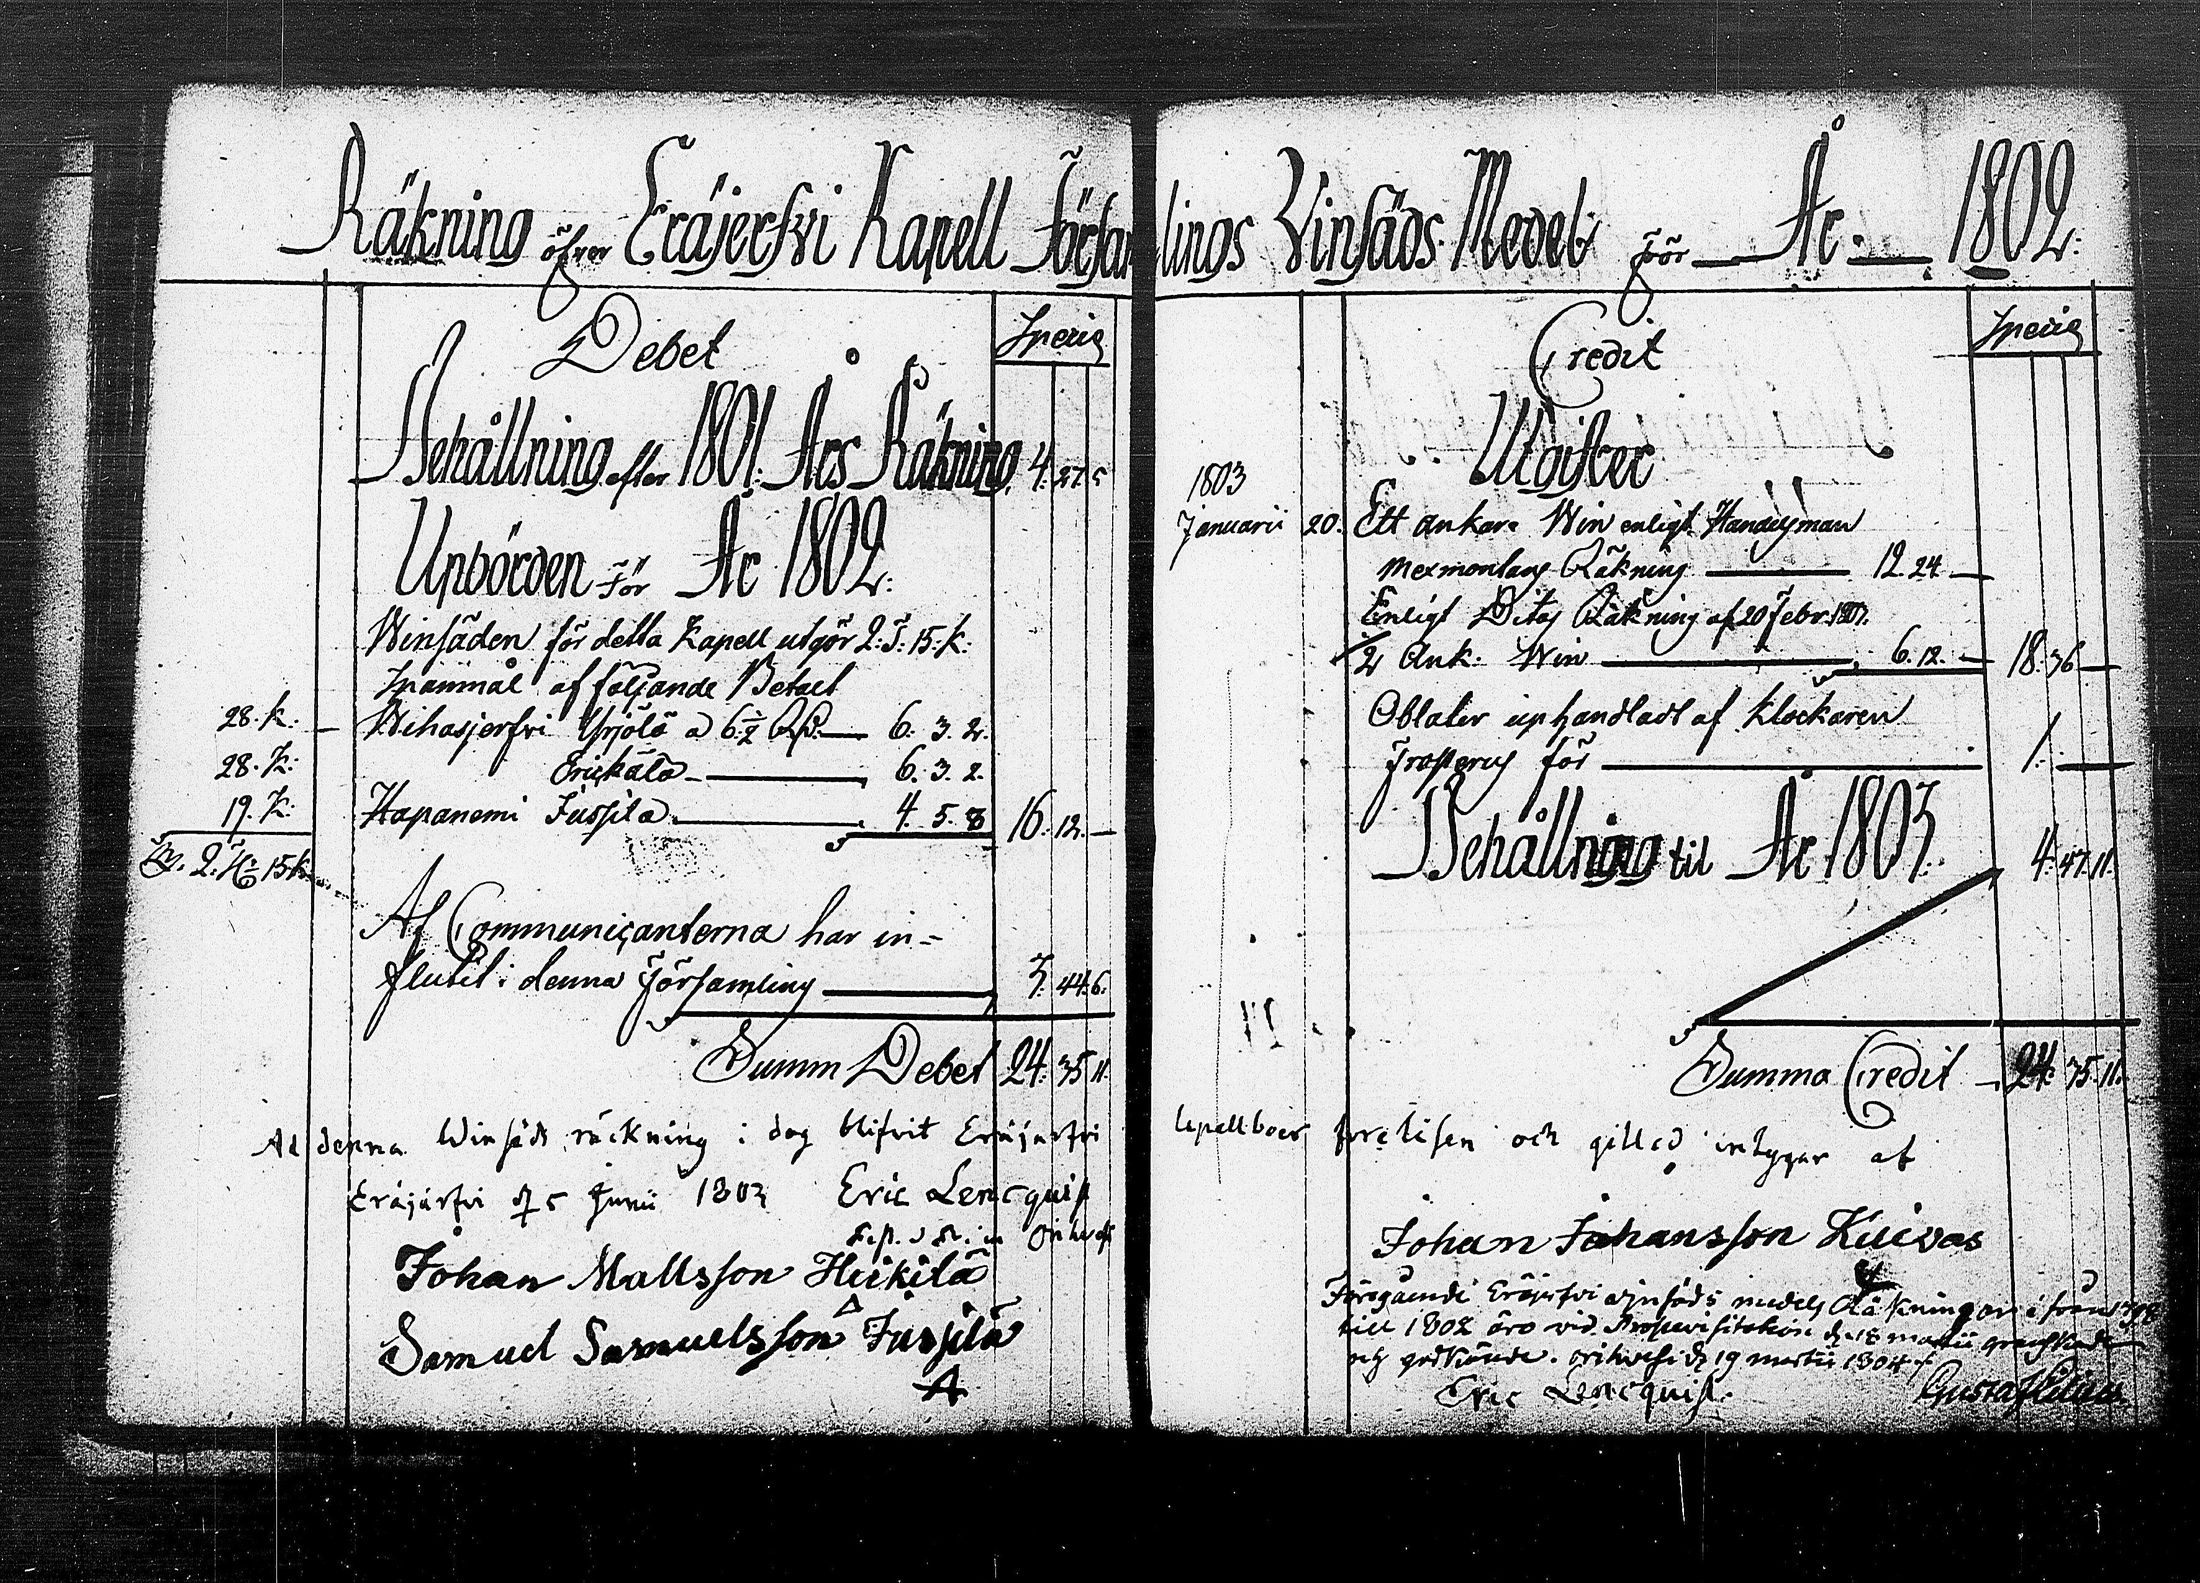 Räkning öfver Eräjerfvi Kapell Församlings Vinsäds Medel för År 1802.
Debet
Specie
Behållning efter 1801. Års Räkning. 4. 27. 5
Upbörden för År 1802.
Winsäden för detta Kapell utgör 2. T: 15. k:
Spanmål af följande Betalt
28. k: Wihasjerfvi Yrjölä a 6½ Rd. 6. 3. 2.
28. k: Erickälä 6. 3. 2.
19. k: Hapanemi Jussila 4. 5. 8 16. 12.
2. T: 15 k.
Af Communicanterna har in-
flutit i denna Församling 3. 44. 6.
Summ Debet 24. 35 11.
Credit
Specie
Utgifter
1803
Januarii 20. Ett ankare Win enligt Handelsman
Mexmontans Räkning 12. 24
Enligt Ditos Räkning af 20 Febr. 1803.
½ Ank. Win 6. 12. 18. 36
Oblater uphandladt af Klockaren
Frosterus för 1.
Behållning til År 1803. 4. 47. 11.
Summa Credit 24. 35. 11.
At denna Winsäds räckning i dag blifvit Eräjärfvi Capellboer förelisen och gillad intygar at
Eräjärfvi d 5 Junii 1803 Eric Lencquist
Orihvesi
Johan Mattsson Heikilä
Samuel Samuelsson Jussila
Johan Johansson Kuivas
Föregående Eräjerfvi vinsäds medels Räkningar ifrån 1798
till 1802 äro vid Prostvisitation d. 18 Martii granskade
och godkände. Orihvesi d 19 martii 1804
Eric Lencquist.